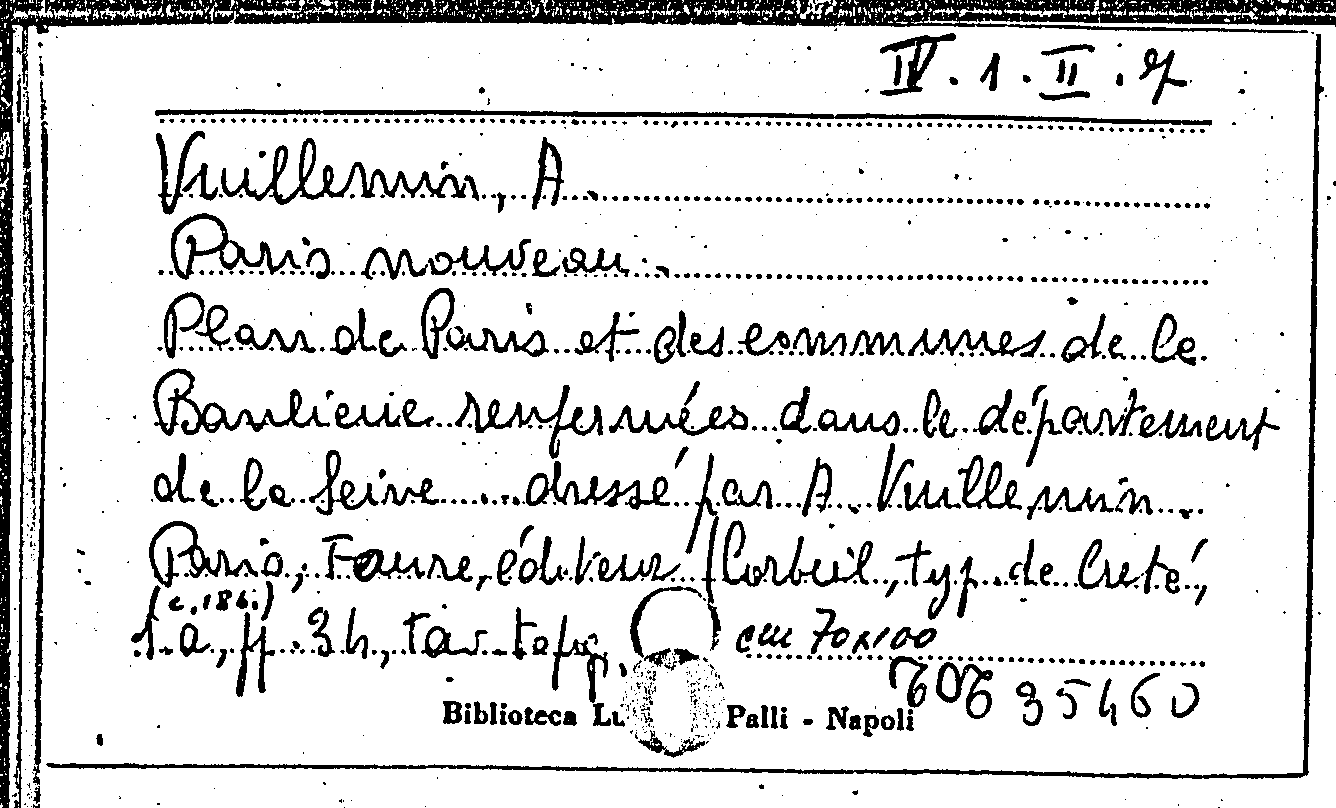 IV. 1. II. 7
Vuillemin, A.
Paris nouveau.
Plan de Paris et des communes de le
Banlieue renfermées dans le département
de la Seine ... dressé par A. Vuillemin ..
Paris, Faure, éditeur (Corbeil, typ. de Creté,
(c. 186.)
s.a, pp. 34, tav. topg. cm 70x100
35460
Biblioteca Lu Palli - Napoli